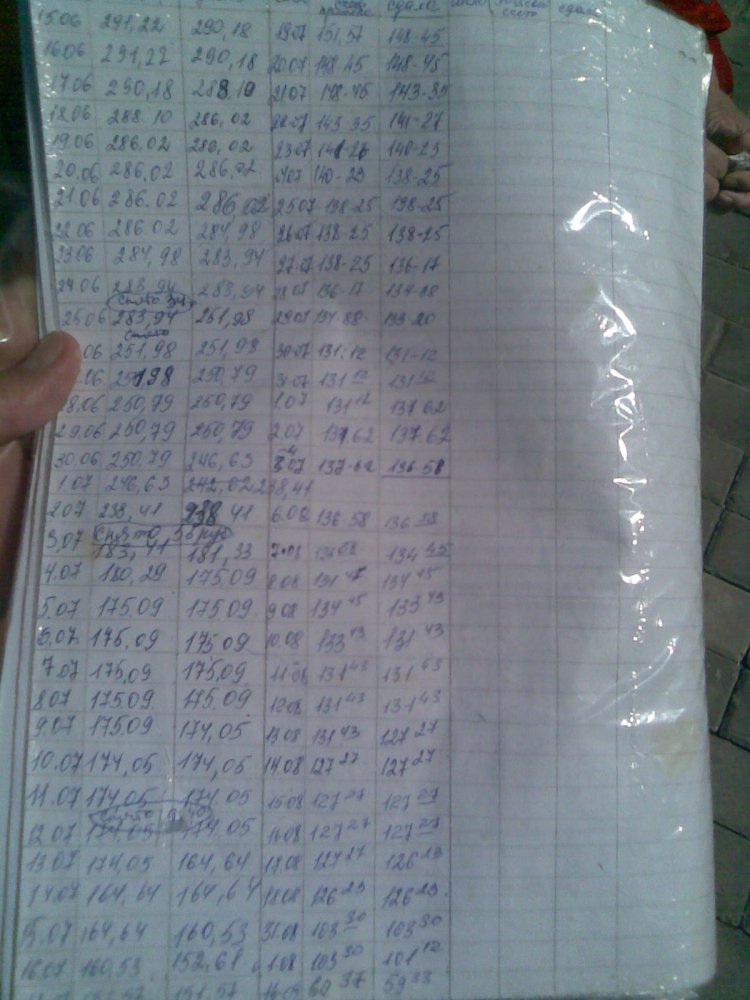 приняла сдала
15.06 291,22 290,18 19.07 151,57 148-45
16.06 291,22 290,18 20.07 148-45 148-45
17.06 290,18 288,10 21.07 148-45 143-35
18.06 288.10 286,02 22.07 143 35 141-27
19.06 286.02 286,02 23.07 140-25
20.06 286,02 286,02 138-25
21.06 286.02 286,02 25.07 138-25 138-25
22.06 286.02 284,98 26.07 138-25 138-25
23.06 284,98 283,94 27.07 138-25 136-17
24.06 283,94 283,94 28.07 136-17
снято
25.06 283,94 251,98 29.07
снято
06 251,98 251,98 30.07 131-12 131-12
06 251,98 250,79 31.07 131 12 131 12
28.06 250,79 250,79 131 12 137 62
29.06 250,79 250,79 2.07 137.62 137.62
30.06 250.79 246,63 137-62 136-58
1.07 246,63 242,02 238,41
2.07 238,41 238,41 6.08 136-58 136 58
снято 55 руб
3.07 183,41 181,33 134 45
4.07 180,29 175.09 8.08 134 45
5.07 175.09 175.09 9.08 134 45 133 43
6.07 175,09 175.09 10.08 133 43 131 43
7.07 175,09 175,09 11.08 131 43 131 43
8.07 175.09 175.09 12.08 131 43 131 43
9.07 175.09 174,05 13.08 131 43 127 27
10.07 174,05 174,05 14.08 127 27 127 27
11.07 174,05 174.05 15.08 127 27 127 27
снято
12.07 174.05 174.05 16.08 127 27 127 27
13.07 174,05 164,64 17.08 127 27 126 23
14.07 164,64 164,64 18.08 126 23 126 23
15.07 164,64 160,53 31.08 103 30 103 30
16.07 160,53 152,61 1.08 103 30 101 12
151,57 151,57 59 33